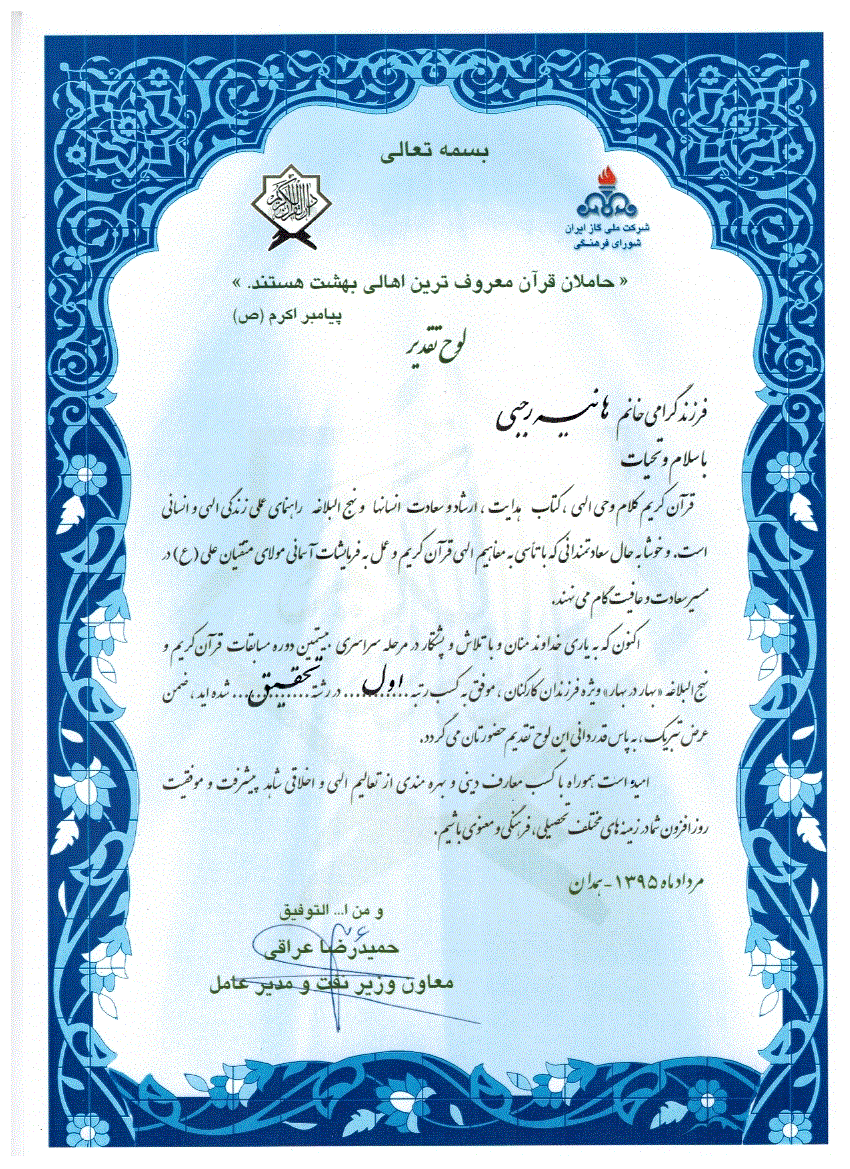 بسمه تعالی
شرکت ملی گاز ایران
شورای فرهنگی
« حاملان قرآن معروف ترین اهالی بهشت هستند. »
پیامبر اکرم (ص)
لوح تقدیر
فرزند گرامی خانم هانیه رجبی
با سلام و تحیات
قرآن کریم کلام وحی الهی ، کتاب هدایت ، ارشاد و سعادت انسانها و نهج البلاغه راهنمای عملی زندگی الهی و انسانی
است. و خوشا به حال سعادتمندانی که با تأسی به مفاهیم الهی قرآن کریم و عمل به فرمایشات آسمانی مولای متقیان علی (ع) در
مسیر سعادت و عافیت گام می نهند.
اکنون که به یاری خداوند منان و با تلاش و پشتکار در مرحله سراسری بیستمین دوره مسابقات قرآن کریم و
نهج البلاغه «بهار در بهار» ویژه فرزندان کارکنان ، موفق به کسب رتبه ...اول... در رشته ...تحقیق... شده اید ، ضمن
عرض تبریک، به پاس قدردانی این لوح تقدیم حضورتان می گردد.
امید است همواره با کسب معارف دینی و بهره مندی از تعالیم الهی و اخلاقی شاهد پیشرفت و موفقیت
روز افزون شما در زمینه های مختلف تحصیلی، فرهنگی و معنوی باشیم.
مرداد ماه ۱۳۹۵ - همدان
و من ا... التوفیق
حمیدرضا عراقی
معاون وزیر نفت و مدیر عامل